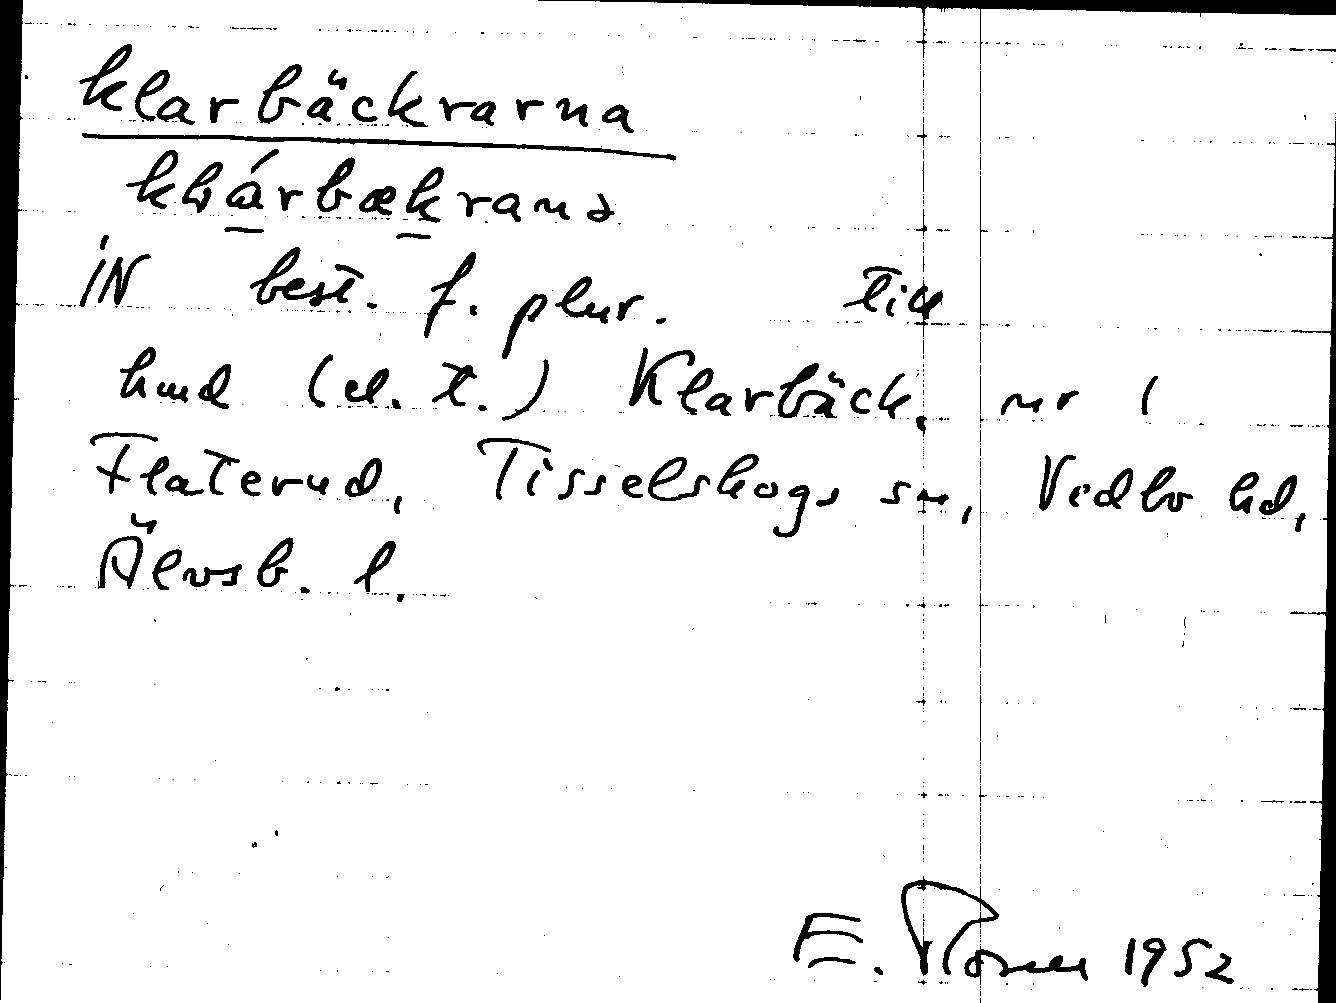 klarbäckrarna
kɫárbækranə
iN best. f. plur. till
hmd (el. t.) Klarbäck, nr 1
Flaterud, Tisselskogs sn, Vedbo hd,
Älvsb. l.
E. 1952